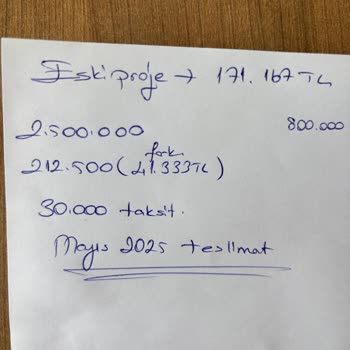 Eski proje → 171.167 TL
2.500.000 800.000
fark
212.500 (41.333TL)
30.000 taksit.
Mayıs 2025 teslimat